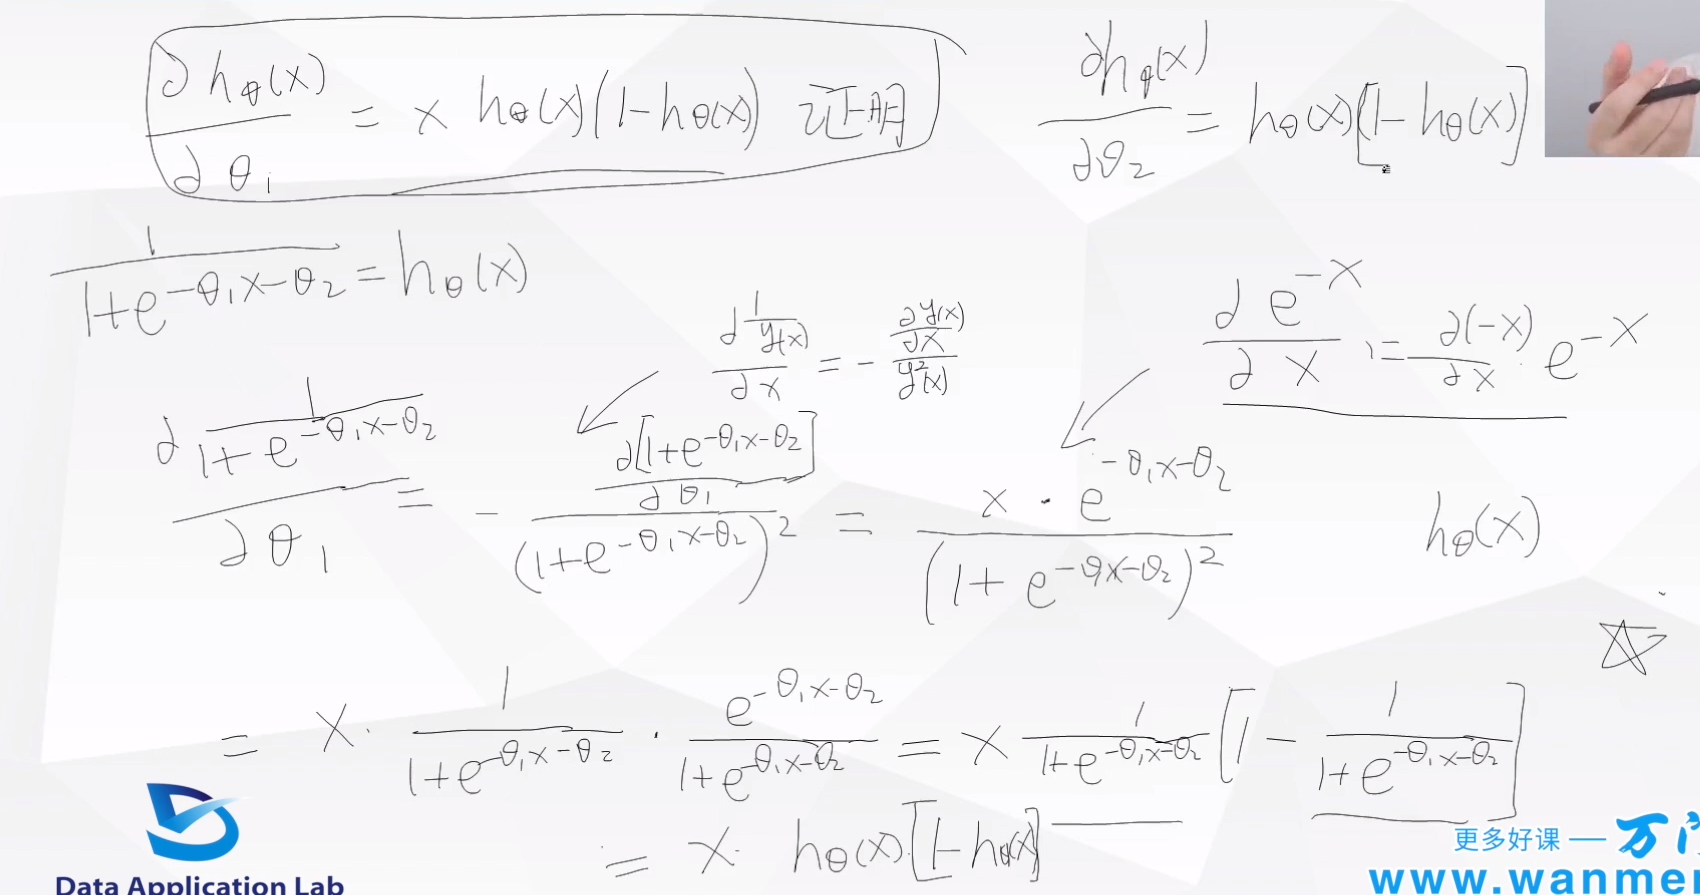 ∂hθ(x)/∂θ₁ = x hθ(x)(1-hθ(x)) 证明
∂hθ(x)/∂θ₂ = hθ(x)[1-hθ(x)]
1/(1+e^(-θ₁x-θ₂)) = hθ(x)
∂(1/y(x))/∂x = -(∂y(x)/∂x)/y²(x)
∂e^(-x)/∂x = ∂(-x)/∂x · e^(-x)
∂(1/(1+e^(-θ₁x-θ₂)))/∂θ₁ = -(∂[1+e^(-θ₁x-θ₂)]/∂θ₁)/(1+e^(-θ₁x-θ₂))² = x·e^(-θ₁x-θ₂)/(1+e^(-θ₁x-θ₂))²
hθ(x)
= x · 1/(1+e^(-θ₁x-θ₂)) · e^(-θ₁x-θ₂)/(1+e^(-θ₁x-θ₂)) = x 1/(1+e^(-θ₁x-θ₂)) [1 - 1/(1+e^(-θ₁x-θ₂))]
= x · hθ(x)·[1-hθ(x)]
更多好课 — 万门
www.wanmen
Data Application Lab